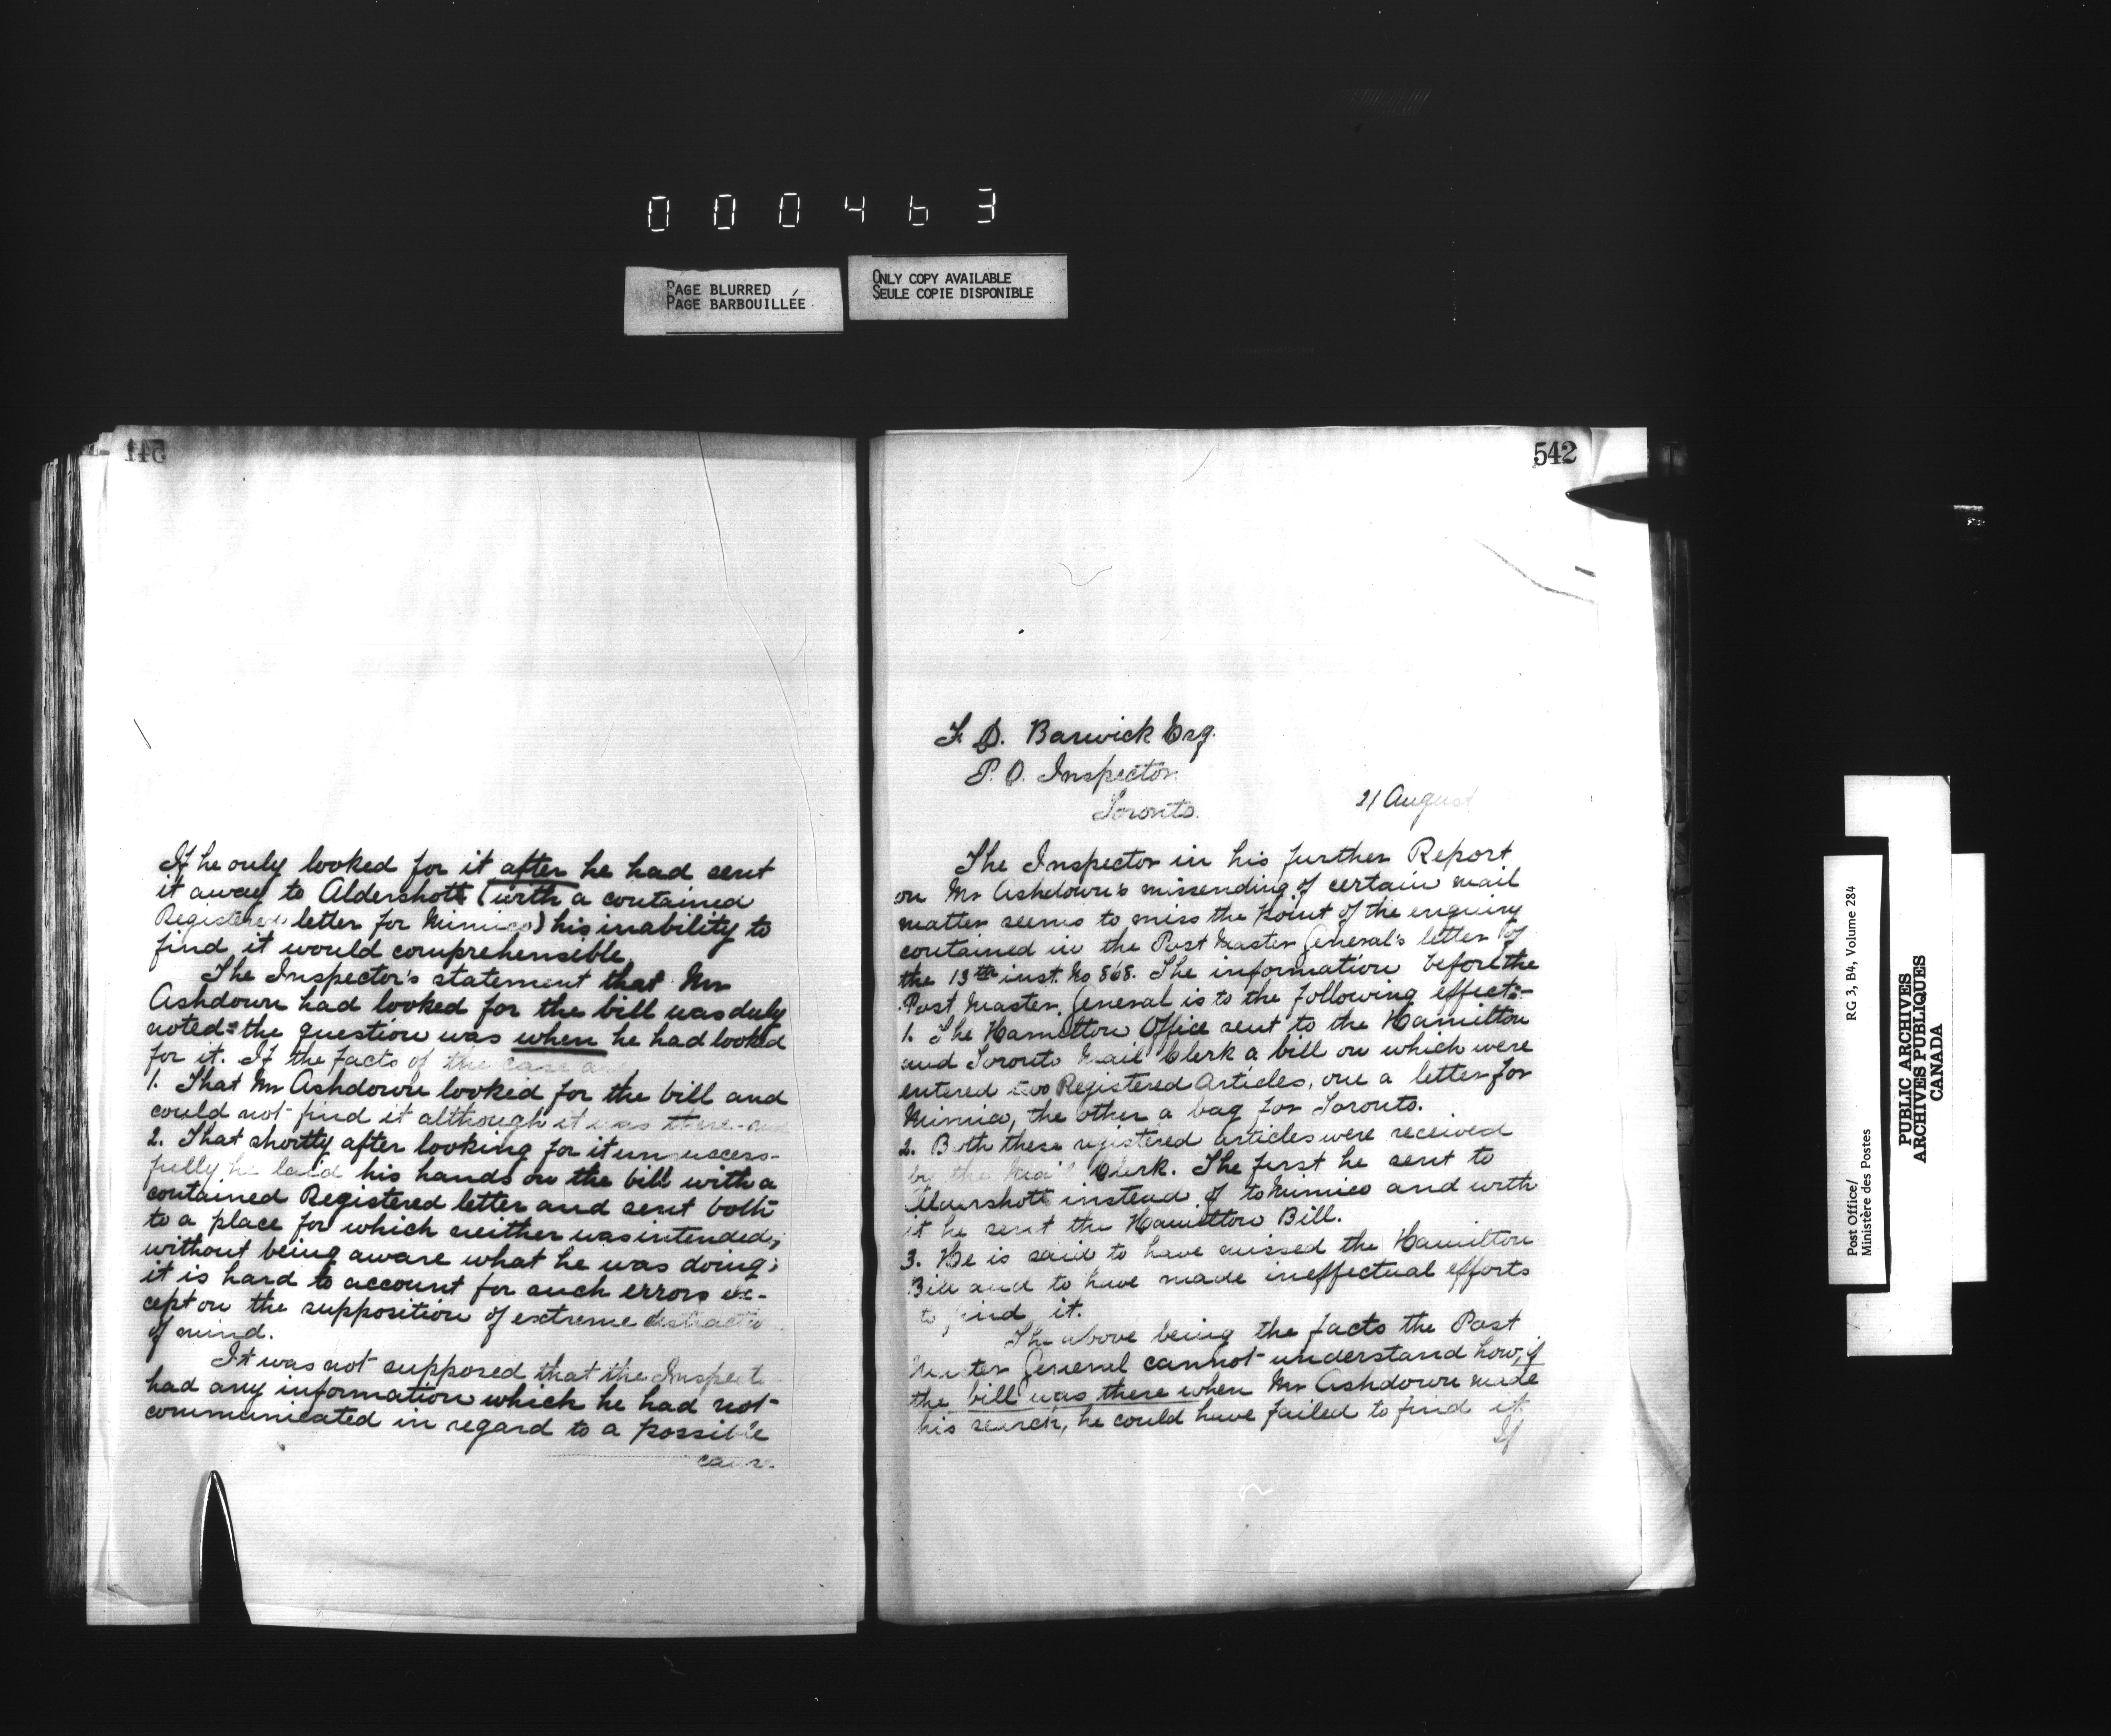 000463
PAGE BLURRED
PAGE BARBOUILLÉE
ONLY COPY AVAILABLE
SEULE COPIE DISPONIBLE
541
If he only looked for it after he had sent
it away to Aldershott (with a contained
Registered letter for Mimico) his inability to
find it would comprehensible.
The Inspector's statement that Mr
Ashdown had looked for the bill was duly
noted: the question was when he had looked
for it. If the facts of the case are
1. That Mr Ashdown looked for the bill and
could not find it although it was there and
2. That shortly after looking for it unsuccess-
fully he laid his hands on the bill with a
contained Registered letter and sent both
to a place for which neither was intended,
without being aware what he was doing;
it is hard to account for such errors ex-
cept on the supposition of extreme distractio
of mind.
It was not supposed that the Inspecto
had any information which he had not
communicated in regard to a possible
542
F. D. Barwick Esq.
P. O. Inspector
Toronto.
21 August
The Inspector in his further Report
on Mr Ashdown's missending of certain mail
matter seems to miss the point of the enquiry
contained in the Post Master General's letter of
the 13th inst. No 868. The information before the
Post Master General is to the following effect:-
1. The Hamilton Office sent to the Hamilton
and Toronto Mail Clerk a bill on which were
entered two Registered Articles, one a letter for
Mimico, the other a bag for Toronto.
2. Both these registered articles were received
by the Mail Clerk. The first he sent to
Aldershott instead of to Mimico and with
it he sent the Hamilton Bill.
3. He is said to have missed the Hamilton
Bill and to have made ineffectual efforts
to find it.
The above being the facts the Post
Master General cannot understand how, if
the bill was there when Mr Ashdown made
his search, he could have failed to find it.
If
Post Office/
Ministère des Postes
RG 3, B4, Volume 284
PUBLIC ARCHIVES
ARCHIVES PUBLIQUES
CANADA